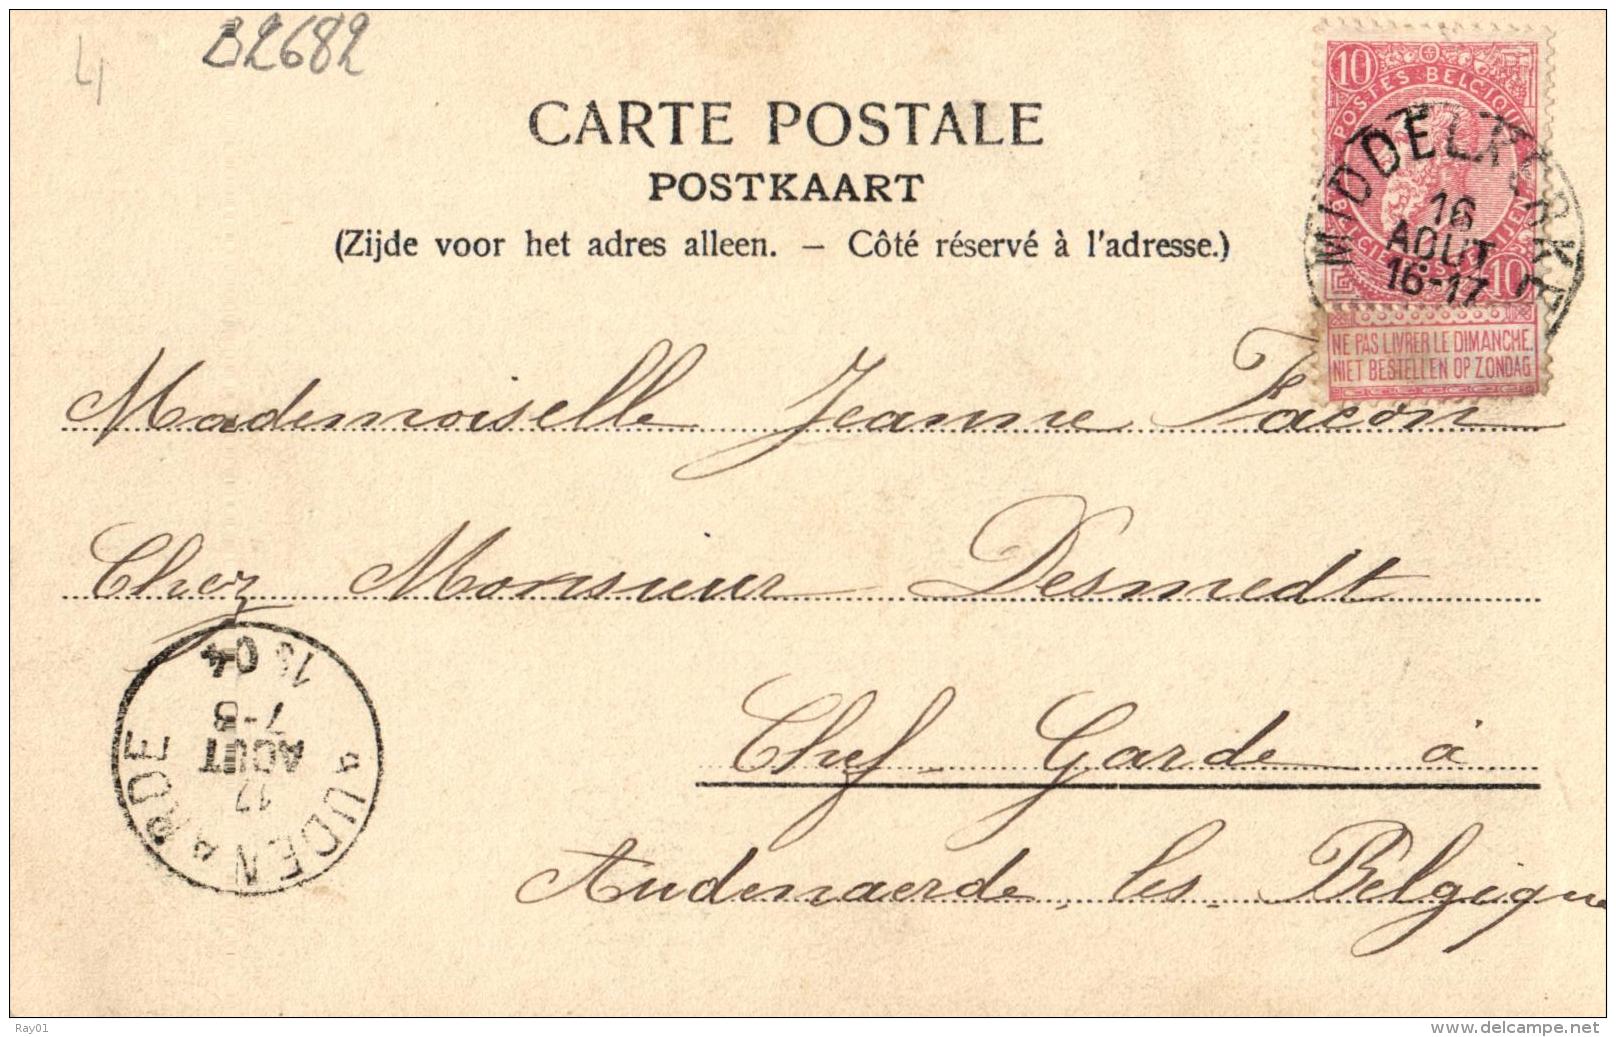 B2682
4
CARTE POSTALE
POSTKAART
(Zijde voor het adres alleen. – Côté réservé à l'adresse.)
10 POSTES BELGIQUE
MIDDELKERKE
16
AOUT
16-17
10
NE PAS LIVRER LE DIMANCHE.
NIET BESTELLEN OP ZONDAG
Mademoiselle Jeanne Facon
Chez Monsieur Desmedt
Chef Garde à
Audenaerde les Belgique
AUDENARDE
17
AOUT
7-8
1904
Ray01
www.delcampe.net